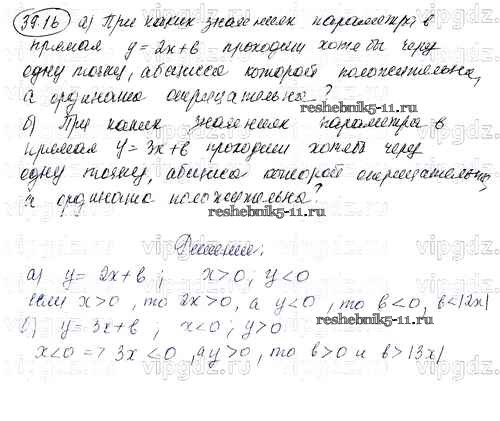 39.16 а) При каких значениях параметра в
прямая y = 2x+в проходит хотя бы через
одну точку, абсцисса которой положительна,
а ордината отрицательна?
reshebnik5-11.ru
б) При каких значениях параметра в
прямая y = 3x+в проходит хотя бы через
одну точку, абсцисса которой отрицательна,
а ордината положительна?
reshebnik5-11.ru
Решение:
а) y = 2x+в ; x>0 ; y<0
если x>0 , то 2x>0, а y<0 , то в<0, в<|2x|
reshebnik5-11.ru
б) y = 3x+в ; x<0 ; y>0
x<0 => 3x<0 , а y>0 , то в>0 и в>|3x|
vipgdz.ru